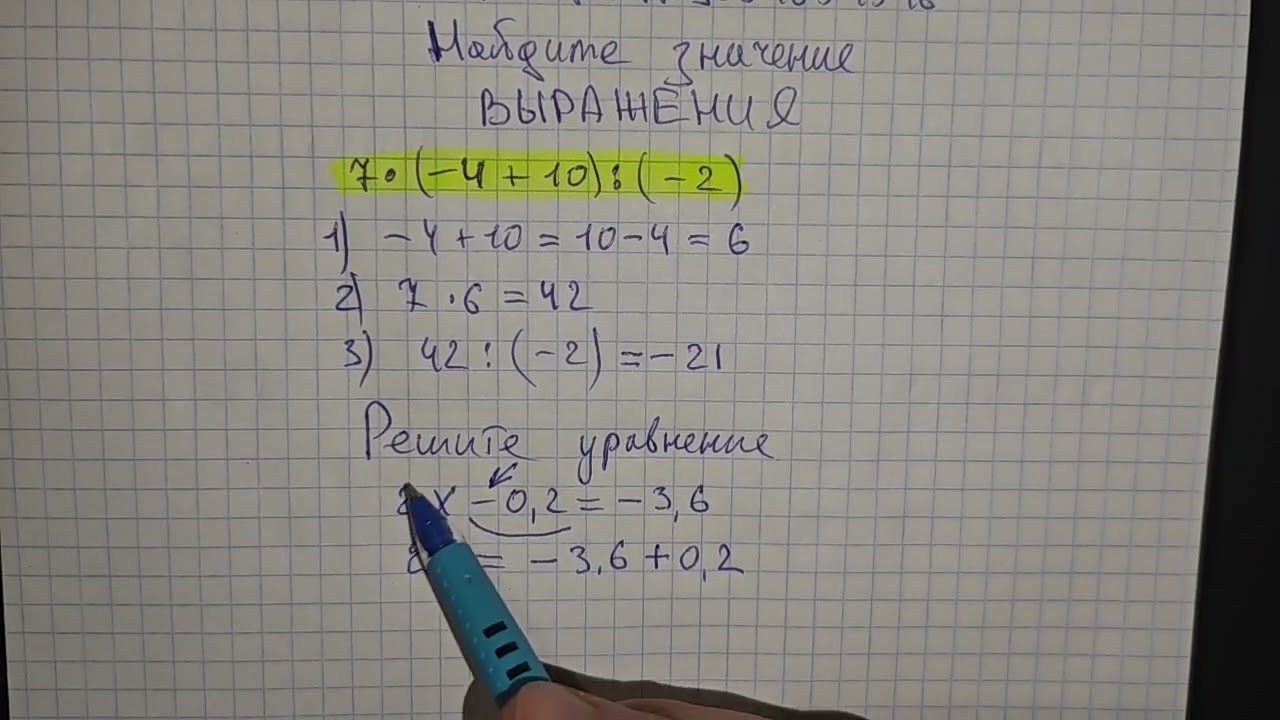 Найдите значение
ВЫРАЖЕНИЯ
7•(-4+10):(-2)
1) -4+10=10-4=6
2) 7·6=42
3) 42:(-2)=-21
Решите уравнение
x -0,2=-3,6
= -3,6+0,2